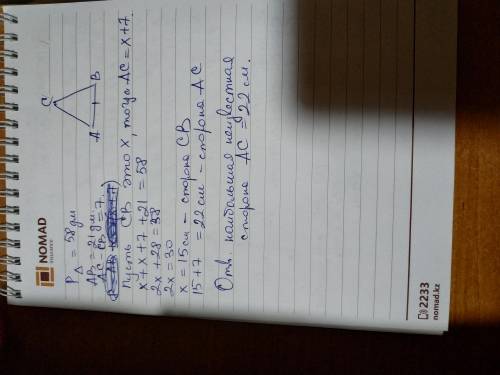 NOMAD
P△ = 58 дм
AB = 21 дм
AC - CB = 7.
C
A B
Пусть CB это x, тогда AC = x+7.
x + x + 7 + 21 = 58
2x + 28 = 58
2x = 30
x = 15 см - сторона CB
15 + 7 = 22 см - сторона AC
Отв. наибольшая неизвестная
сторона AC = 22 см.
2233
nomad.kz